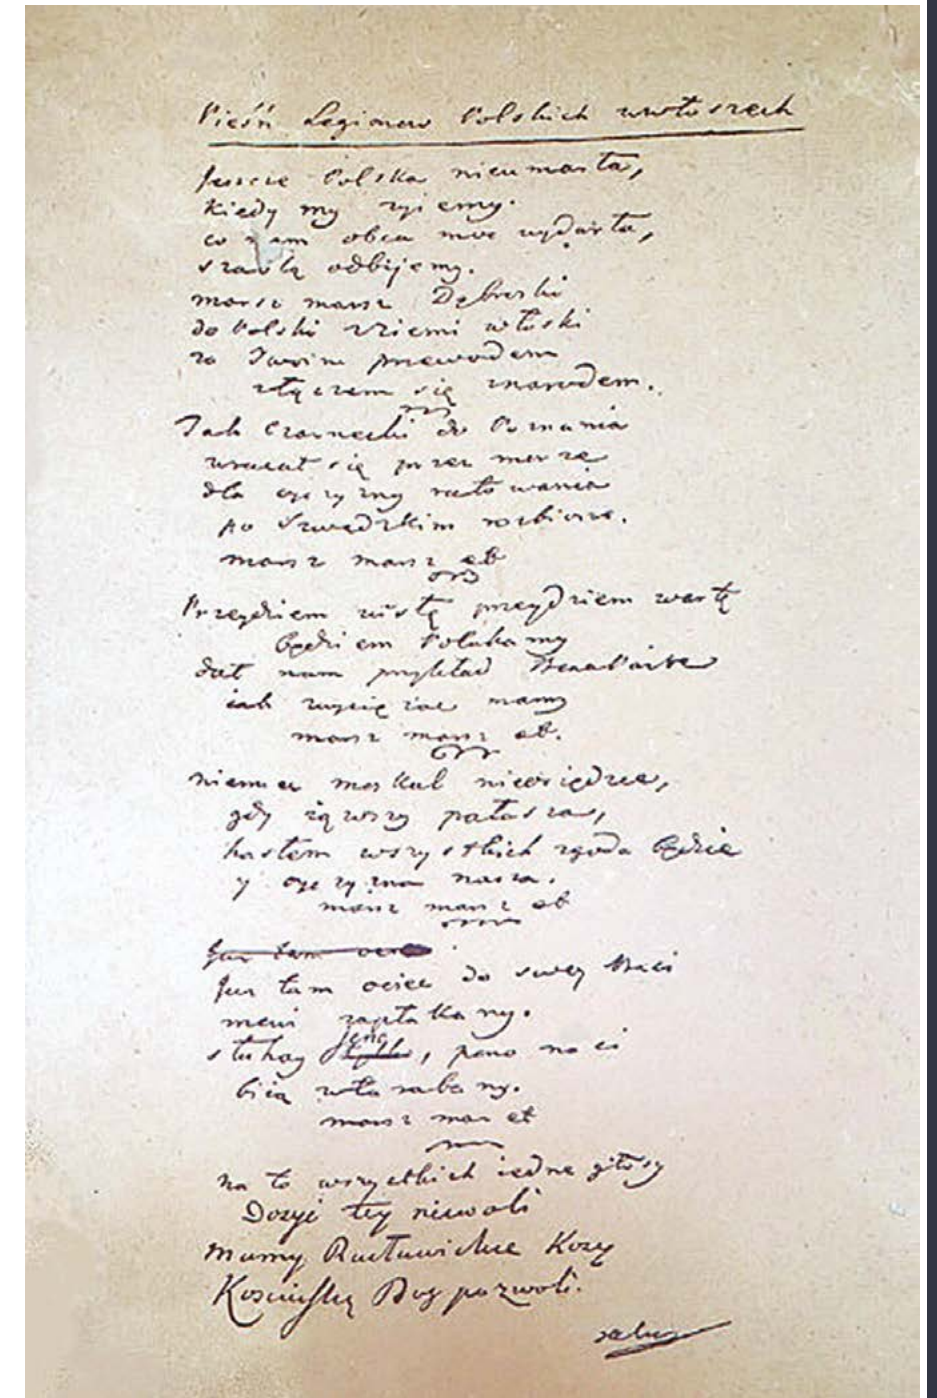 Pieśń Legionow Polskich wewłoszech
Jeszcze Polska nieumarła,
kiedy my zyiemy.
co nam obca moc wydarła,
szablą odbijemy.
marsz marsz Dąbroski
do Polski zziemi włoski
za Twoim przewodem
złączem się znarodem.
Jak Czarnecki do Poznania
wracał się przez morze
dla oyczyzny ratowania
po Szwedzkim rozbiorze.
marsz marsz et
Przeydziem wisłę przeydziem wartę
będziem Polakamy
dał nam przykład Bonaparte
iak zwyciężac mamy
marsz marsz et.
niemiec moskal nieosiędzie,
gdy iąwszy pałasza,
hasłem wszystkich zgoda będzie
y oyczyzna nasza.
marsz marsz et
Juz tam
Juz tam ociec do swey Basi
mowi zapłakany.
słuchay jeno, pono nasi
biią wtarabany.
marsz mar et
na to wszystkich iedne głosy
Dosyć tey niewoli
Mamy Racławickie Kosy
Kosciuszkę Bog pozwoli.